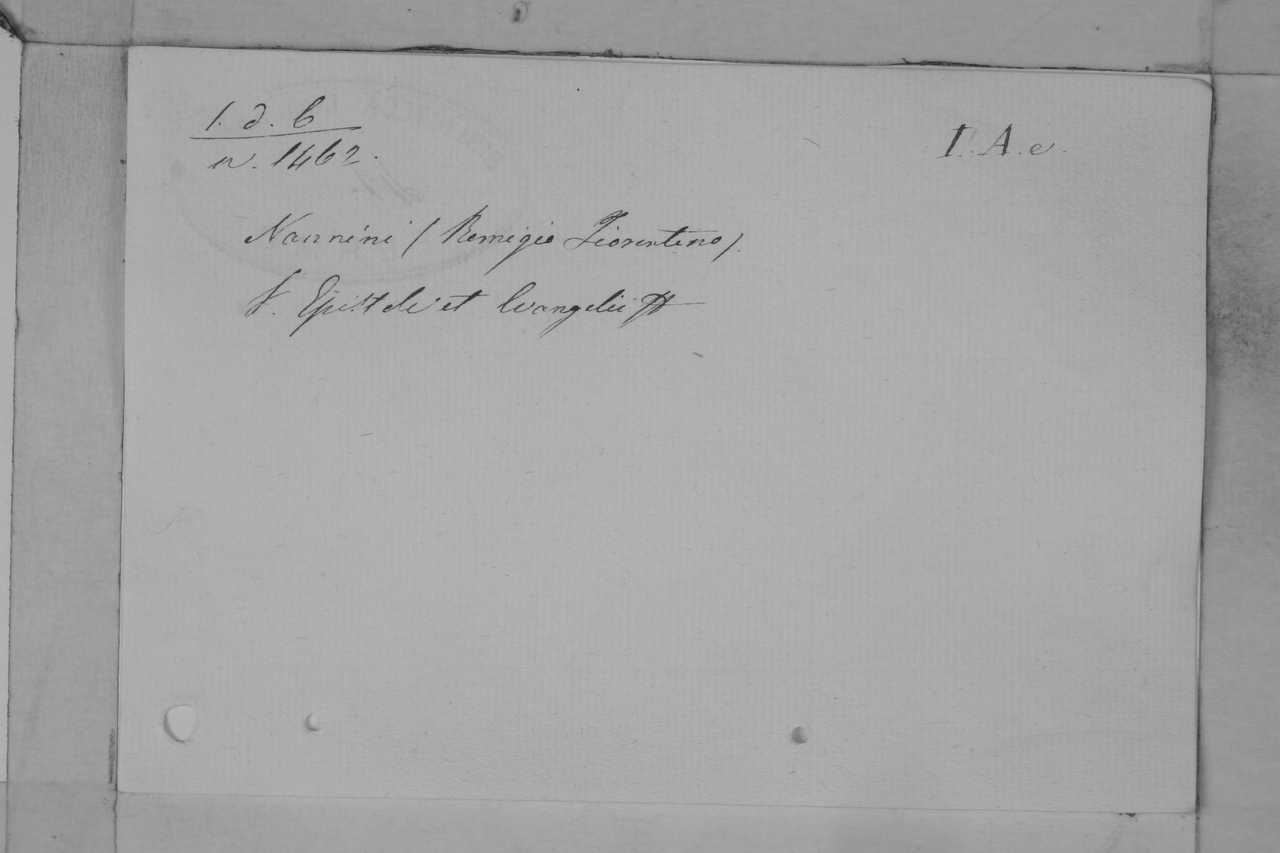 1. d. 6
n. 1462.
I. A. e.
Nannini (Remigio Fiorentino).
V. Epistole et Evangelii